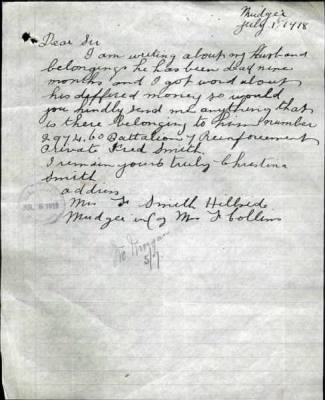 Mudgee
July 1. 1918
Dear Sir
I am writing about my Husband
belongings he has been dead nine
months and I got word about
his deffered money so would
you kindly send me anything that
is there Belonging to him number
2974. 60 Battalion 7 Reinforcement
Private Fred Smith.
I remain yours truly Chrestina
Smith
address
Mrs F Smith
Mudgee c/o Mrs F Collins
5/7